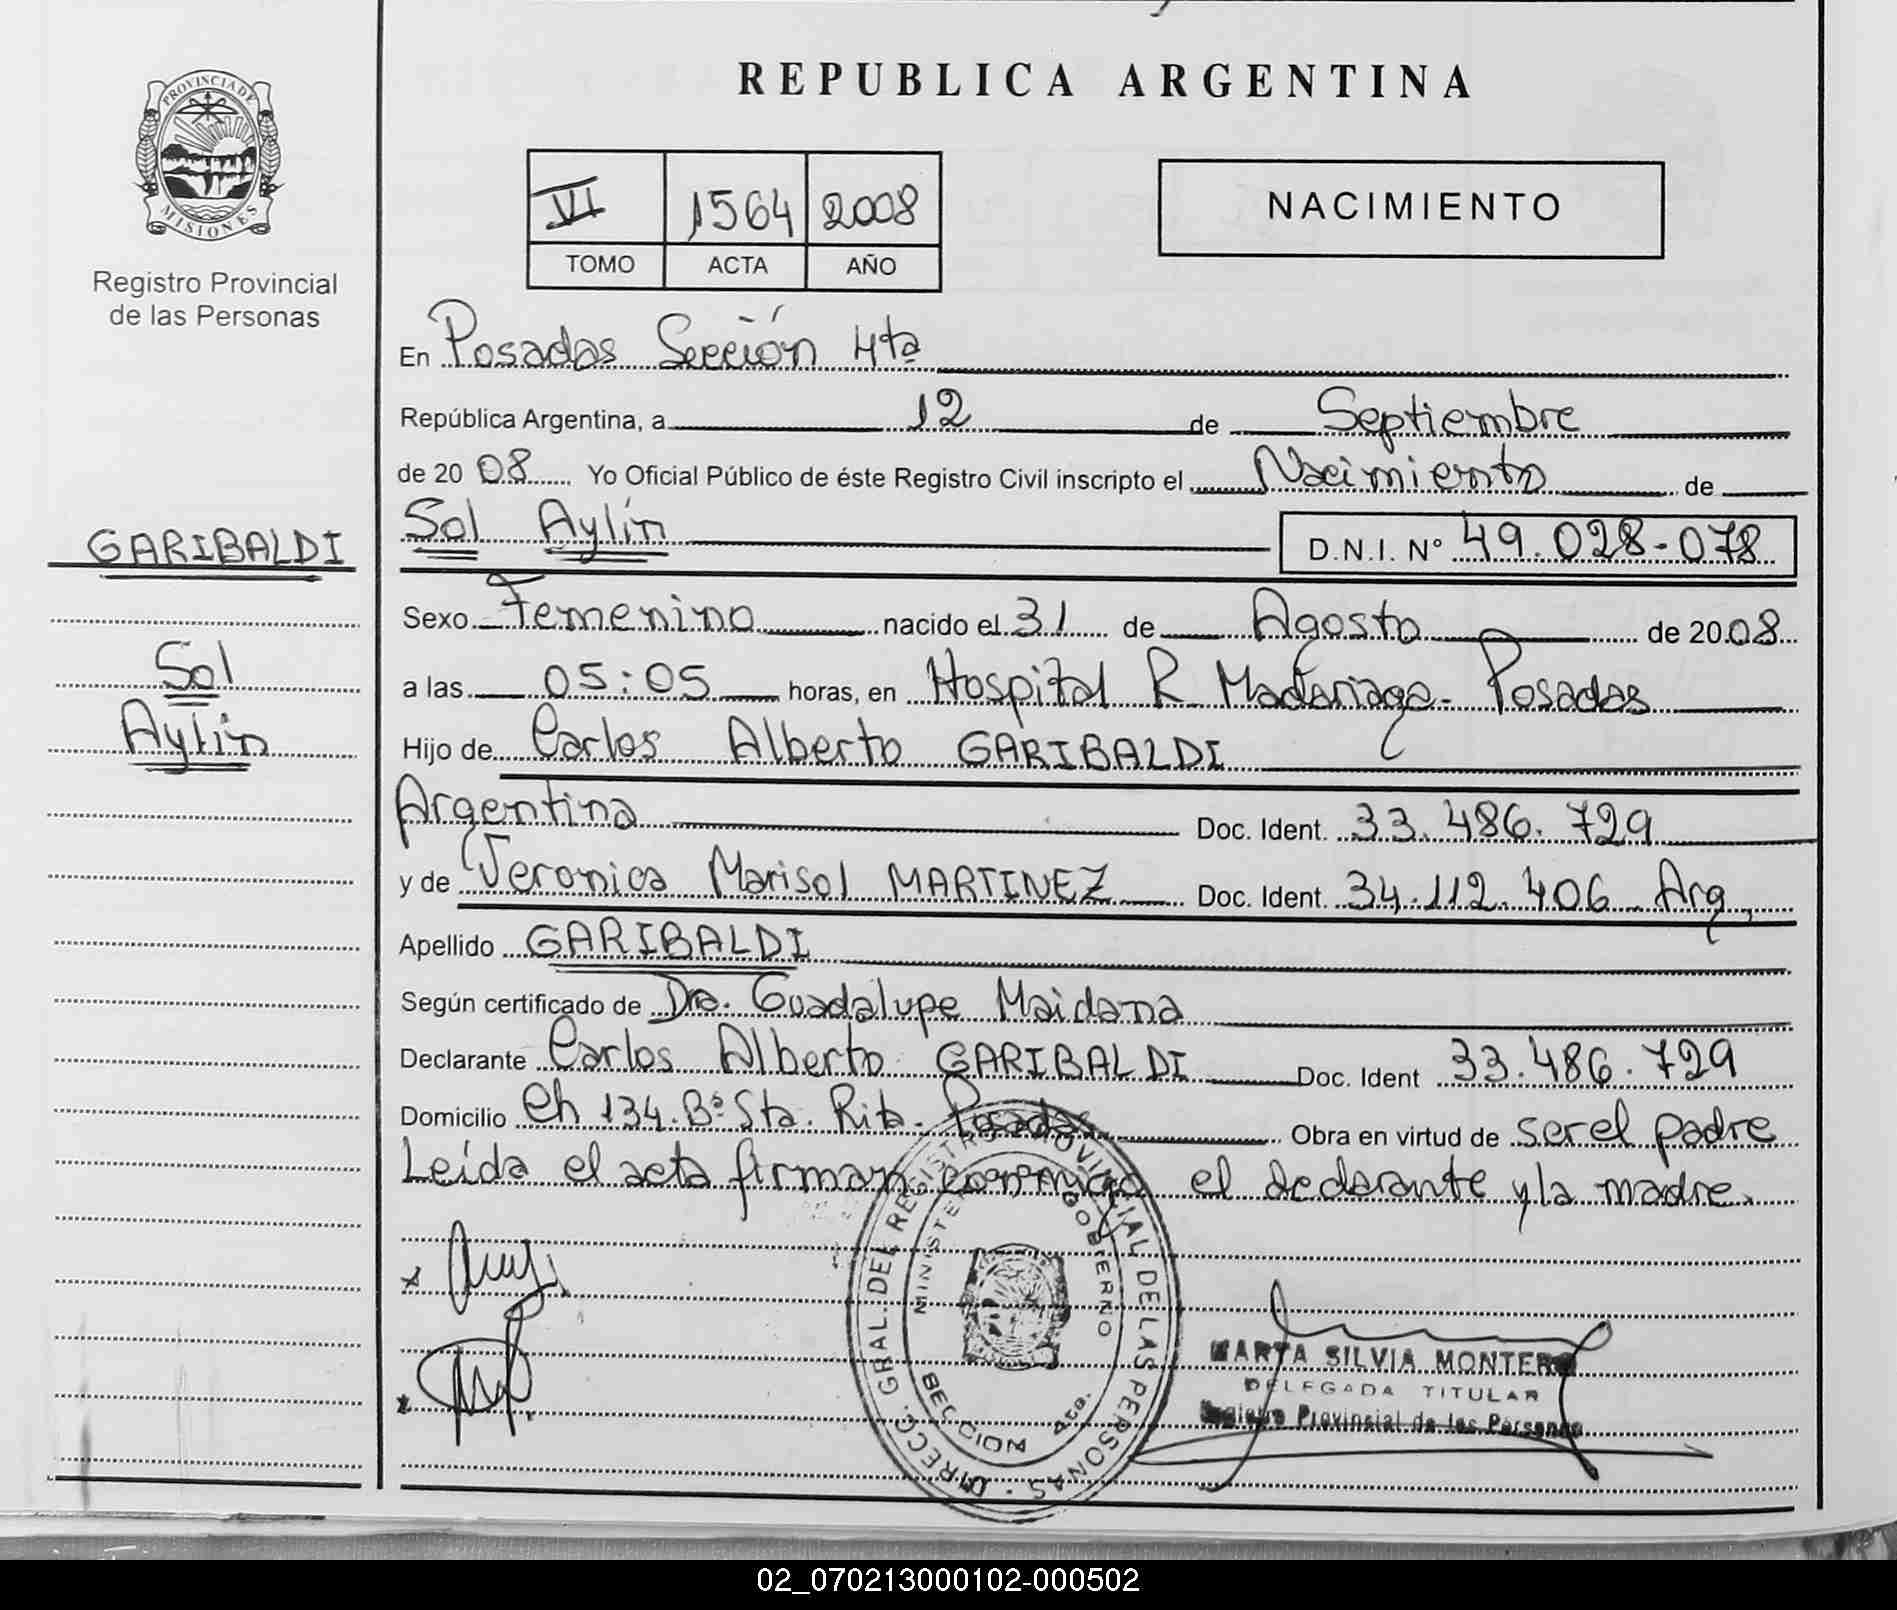 PROVINCIA DE
MISIONES
Registro Provincial
de las Personas
GARIBALDI
Sol
Aylin
REPUBLICA ARGENTINA
VI 1564 2008
TOMO ACTA AÑO
NACIMIENTO
En Posadas Sección 4ta
República Argentina, a 12 de Septiembre
de 2008 Yo Oficial Público de éste Registro Civil inscripto el Nacimiento de
Sol Aylín D.N.I. Nº 49.028-078
Sexo Femenino nacido el 31 de Agosto de 2008
a las 05:05 horas, en Hospital R. Madariaga- Posadas
Hijo de Carlos Alberto GARIBALDI
Argentina Doc. Ident. 33.486.729
y de Veronica Marisol MARTINEZ Doc. Ident. 34.112.406 Arg.
Apellido GARIBALDI
Según certificado de Dra. Guadalupe Maidana
Declarante Carlos Alberto GARIBALDI Doc. Ident 33.486.729
Domicilio Ch 134. Bº Sta. Rita. Posadas Obra en virtud de ser el padre
Leída el acta firman conmigo el declarante y la madre.
DIRECC. GRAL. DEL REGISTRO PROVINCIAL DE LAS PERSONAS
MINISTERIO GOBIERNO
SECCION 4ta.
MARTA SILVIA MONTERO
DELEGADA TITULAR
Registro Provincial de las Personas
02_070213000102-000502